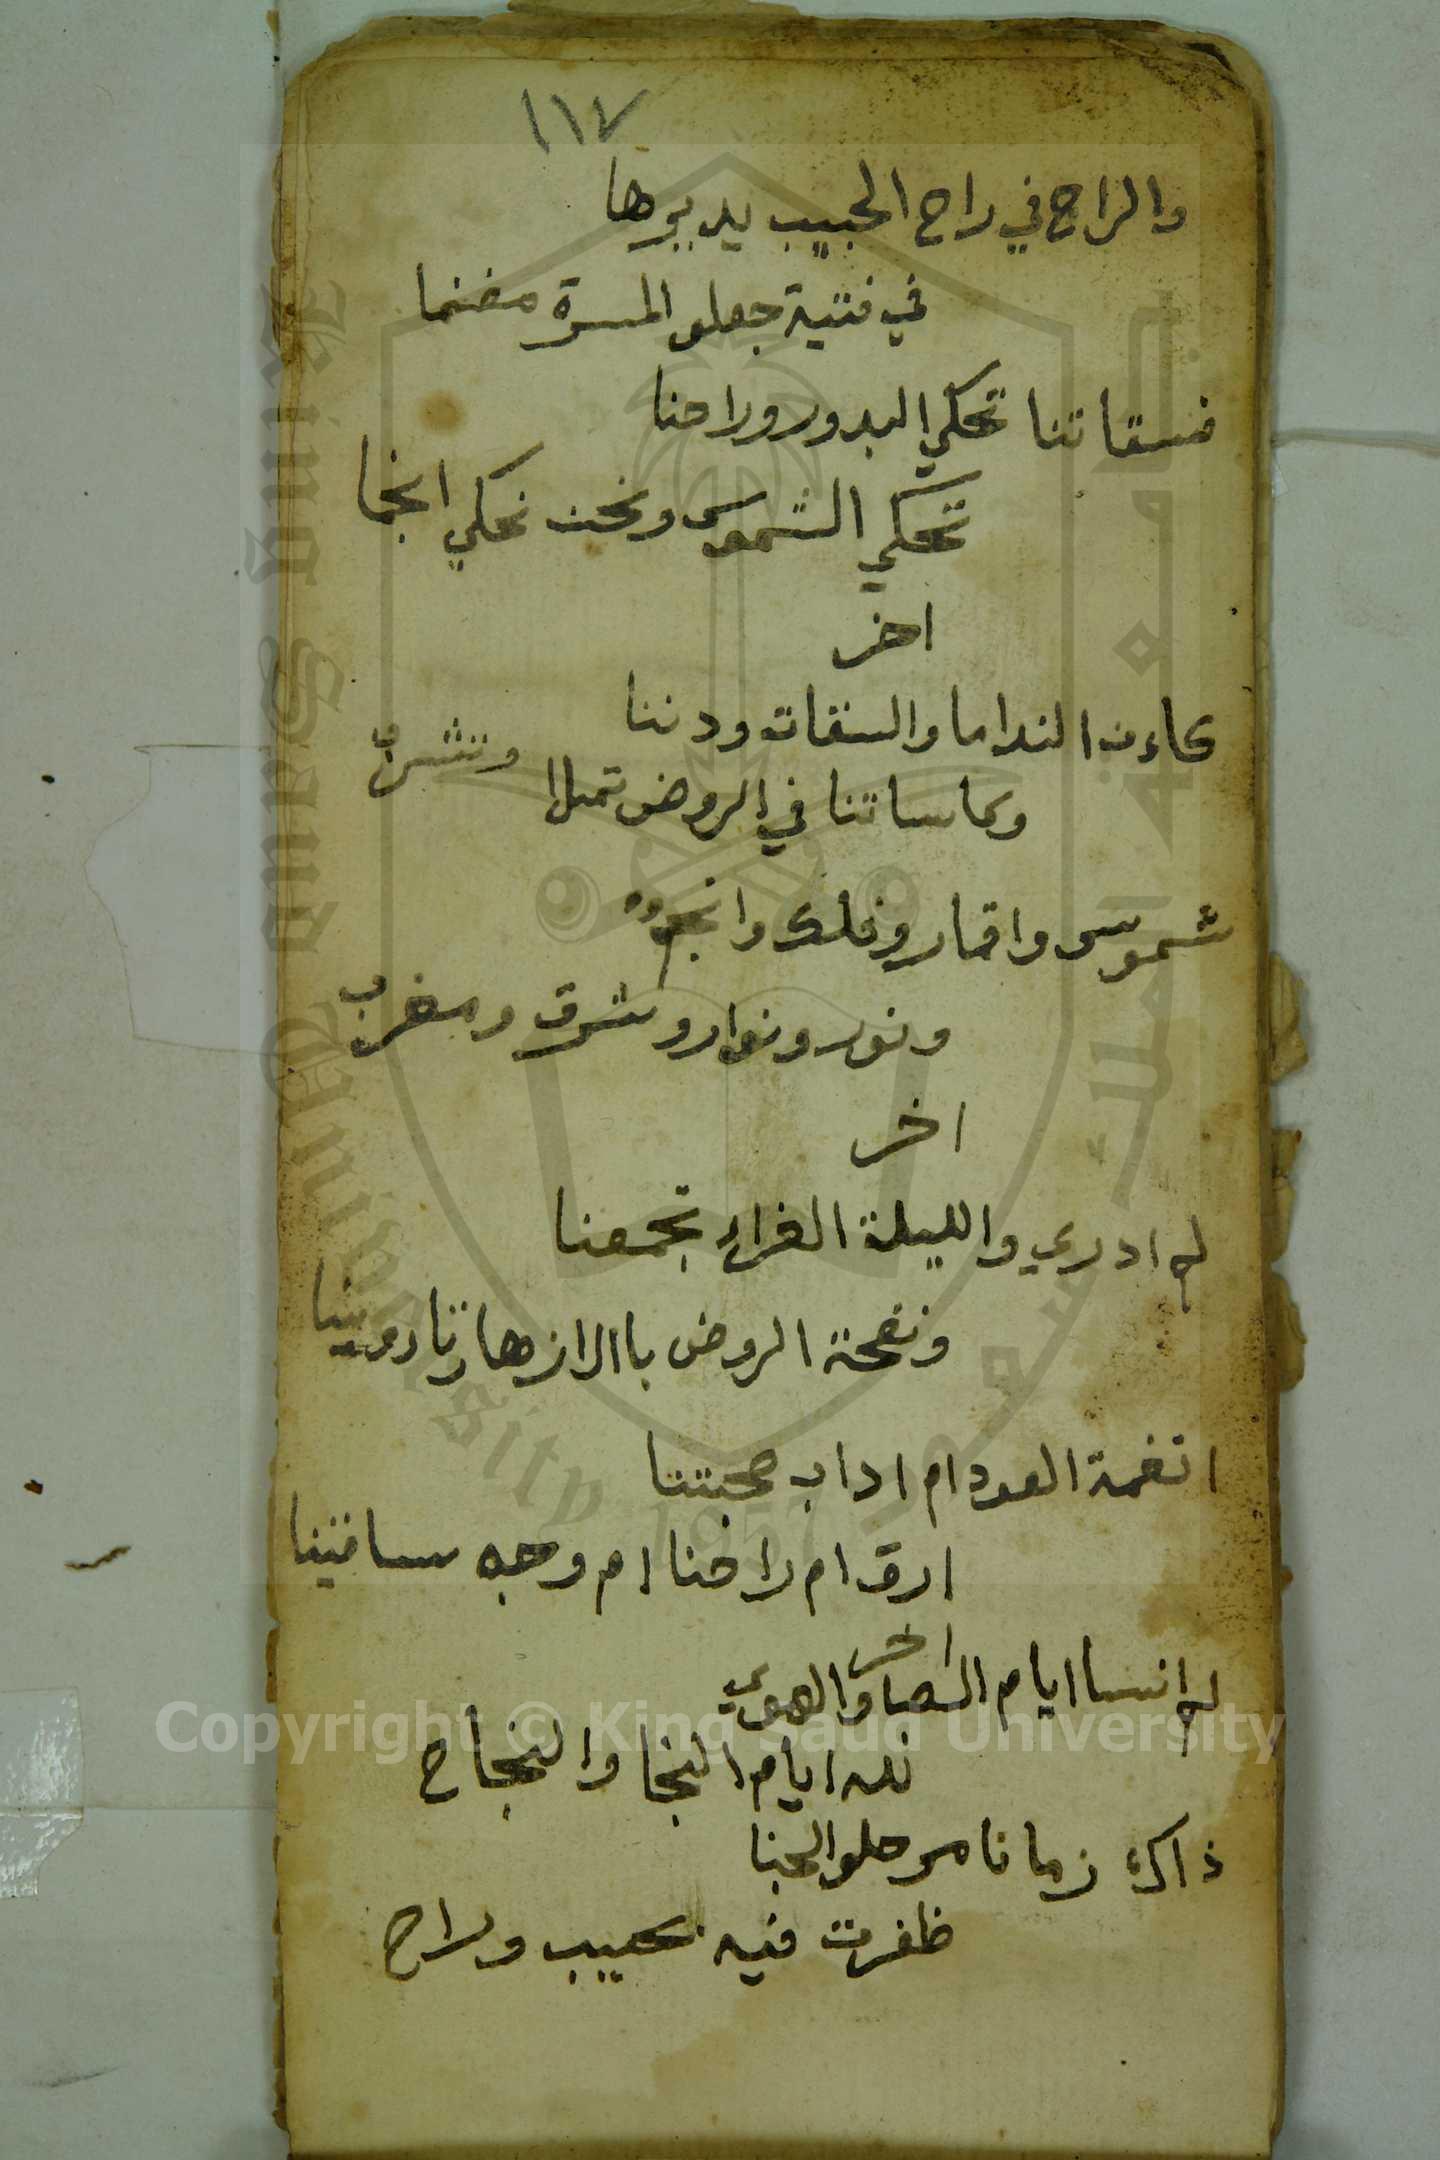 ١١٧
والراح في راح الحبيب يديرها
في فتية جعلو المسرة مغنما
فسقاتنا تحكي البدور وراحنا
تحكي الشموس ونحن نحكي انجما
اخر
كاءن النداما والسقات ودننا
وكاساتنا في الروض تملا وتشرب
شموس واقمار وفلك وانجم
ونور ونوار وشرق ومغرب
اخر
لم ادري والليلة الغراء تجمعنا
ونفحة الروض باالازهار تاروينا
انغمة العود ام اداب صحبتنا
ارق ام راحنا ام وجه ساقينا
اخر
لم انسا ايام الصبا والهوي
لله ايام النجا والنجاح
ذاك زمانا مر حلو الجنا
ظفرت فيه بحبيب وراح
Copyright © King Saud University
King Saud University
1957